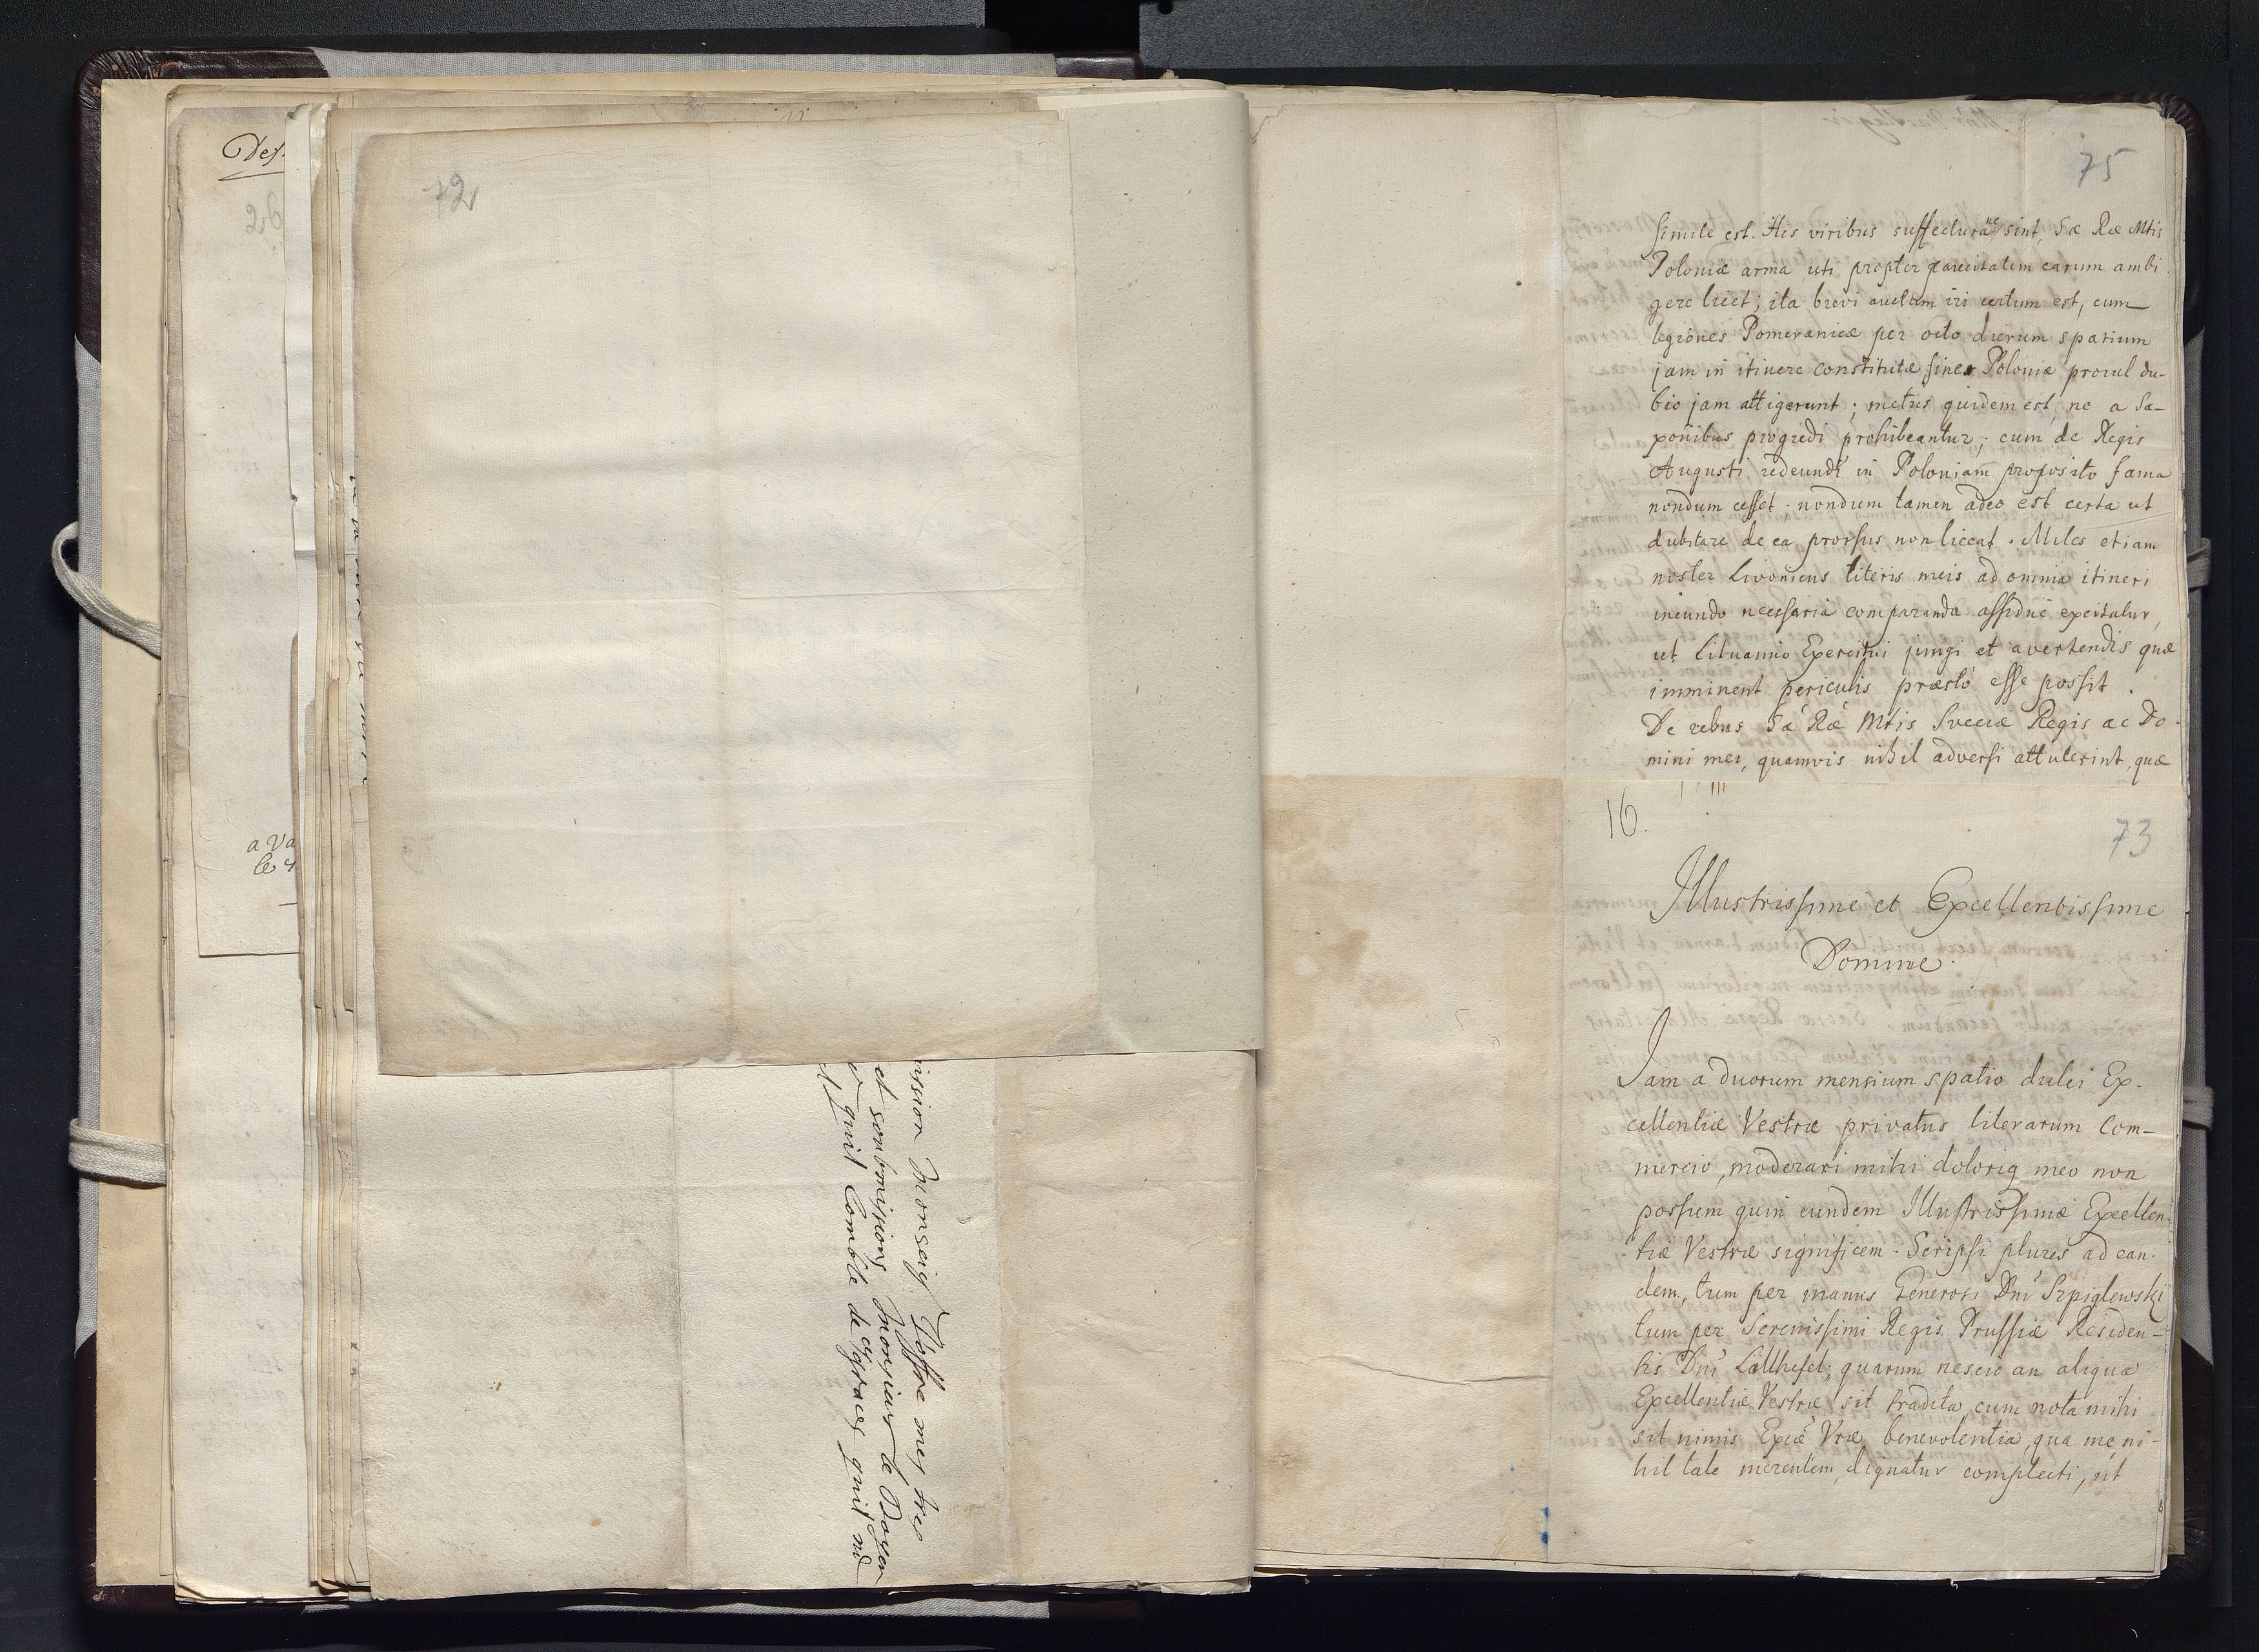 Des.
26
a Va
le
72
ission Monseig.r J'offre mes tres
et soubmisions Monsieur le Doyen
quil Comble de ces graces quil
75
simile est. His viribus suffectura ne sint, Sæ Ræ Mtis
Poloniæ arma, uti propter paucitatem earum ambi
gere licet; ita brevi auctum iri certum est, cum
legiones Pomeranicæ per octo dierum spatium
jam in itinere constitutæ fines Poloniæ procul du-
bio jam attigerunt; metus quidem est, ne a Sa-
xonibus progredi prohibeantur; cum de Regis
Augusti redeundi in Poloniam proposito fama
nondum cesset; nondum tamen adeo est certa ut
dubitare de ea prorsus non liceat. Miles etiam
noster Livonicus literis meis ad omnia itineri
ineundo necessaria comparanda assidue excitatur,
ut Lituanico Exercitui jungi et avertendis quæ
imminent periculis præsto esse possit.
De rebus Sæ Ræ Mtis Sveciæ Regis ac Do-
mini mei, quamvis nihil adversi attulerint, quæ
16.
73
Illustrissime et Excellentissime
Domine.
Jam a duorum mensium spatio dulci Ex-
cellentiæ Vestræ privatus literarum Com-
mercio, moderari mihi doloriq meo non
possum quin eundem Illustrissimæ Excellen-
tiæ Vestræ significem. Scripsi plures ad ean-
dem, tum per manus Generosi Dni Szpiglewski
tum per Serenissimi Regis Prussiæ Residen-
tis Dni Löllhefel; quarum nescio an aliqua
Excellentiæ Vestræ sit tradita, cum nota mihi
sit nimis Exciæ Vræ benevolentia, qua me, ni-
hil tale merentem, dignatur complecti, ut